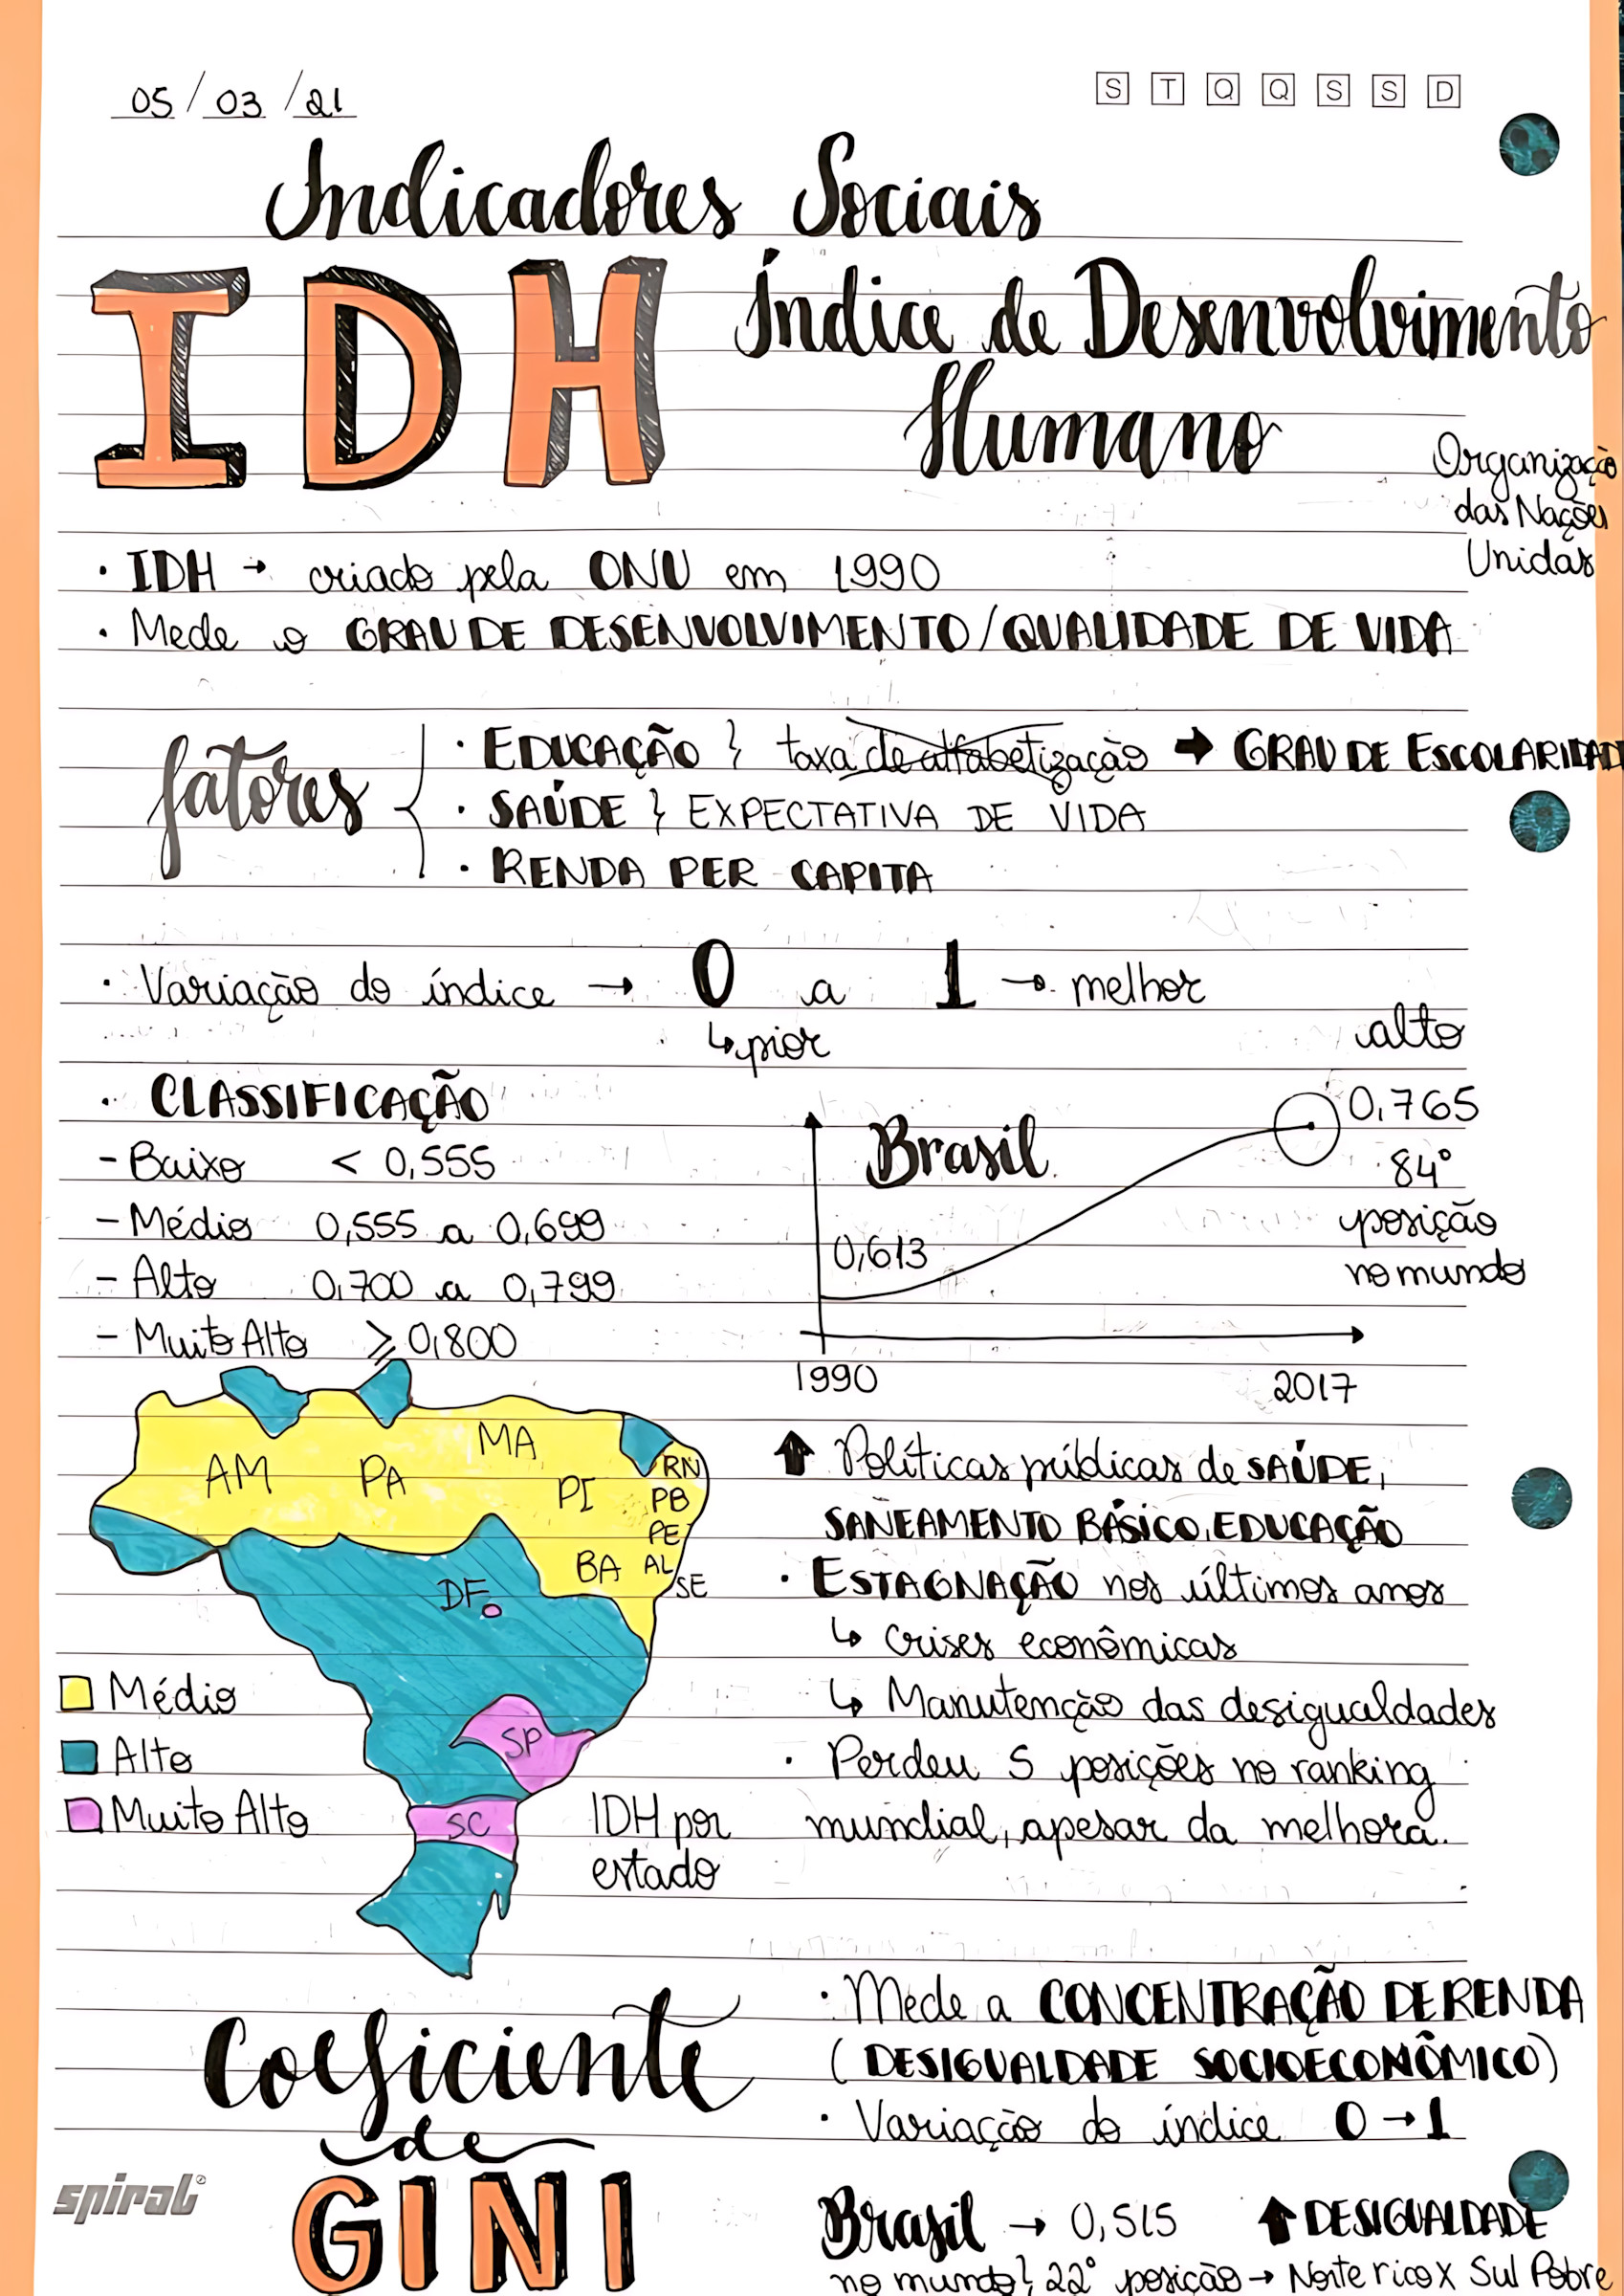 05/03/21
S T Q Q S S D
Indicadores Sociais
IDH Índice de Desenvolvimento
Humano
Organização
das Nações
Unidas
· IDH → criado pela ONU em 1990
· Mede o GRAU DE DESENVOLVIMENTO/QUALIDADE DE VIDA
fatores
· EDUCAÇÃO } taxa de alfabetização → GRAU DE ESCOLARIDAD
· SAÚDE } EXPECTATIVA DE VIDA
· RENDA PER CAPITA
· Variação do índice → 0 a 1 → melhor
↳ pior
· CLASSIFICAÇÃO
- Baixo < 0,555
- Médio 0,555 a 0,699
- Alto 0,700 a 0,799
- Muito Alto ⩾ 0,800
alto
0,765
84º
posição
no mundo
Brasil
0,613
1990
2017
AM PA MA PI RN
PB
PE
BA AL
SE
DF
SP
SC
Médio
Alto
Muito Alto
IDH por
estado
⬆ Políticas públicas de SAÚDE,
SANEAMENTO BÁSICO, EDUCAÇÃO
· ESTAGNAÇÃO nos últimos anos
↳ crises econômicas
↳ Manutenção das desigualdades
· Perdeu 5 posições no ranking
mundial, apesar da melhora.
Coeficiente
de
GINI
· Mede a CONCENTRAÇÃO DE RENDA
(DESIGUALDADE SOCIOECONÔMICO)
· Variação do índice 0 → 1
Brasil → 0,515 ⬆ DESIGUALDADE
no mundo } 22º posição → Norte rico X Sul Pobre
spiral